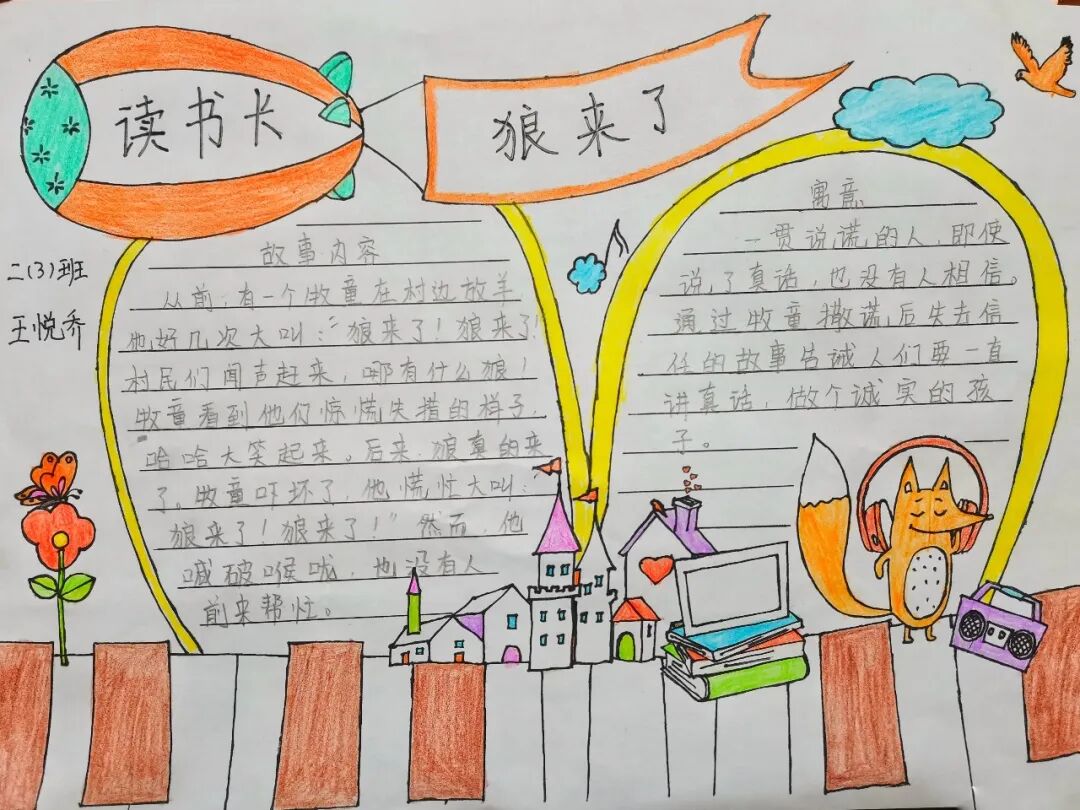 读书卡
狼来了
二(3)班
王悦乔
故事内容
从前,有一个牧童在村边放羊
他好几次大叫:"狼来了!狼来了!
村民们闻声赶来,哪有什么狼!
牧童看到他们惊慌失措的样子,
哈哈大笑起来。后来,狼真的来
了。牧童吓坏了,他慌忙大叫:
狼来了!狼来了!"然而,他
喊破喉咙,也没有人
前来帮忙。
寓意
一贯说谎的人,即使
说了真话,也没有人相信。
通过牧童撒谎,后失去信
任的故事告诫人们要一直
讲真话,做个诚实的孩
子。